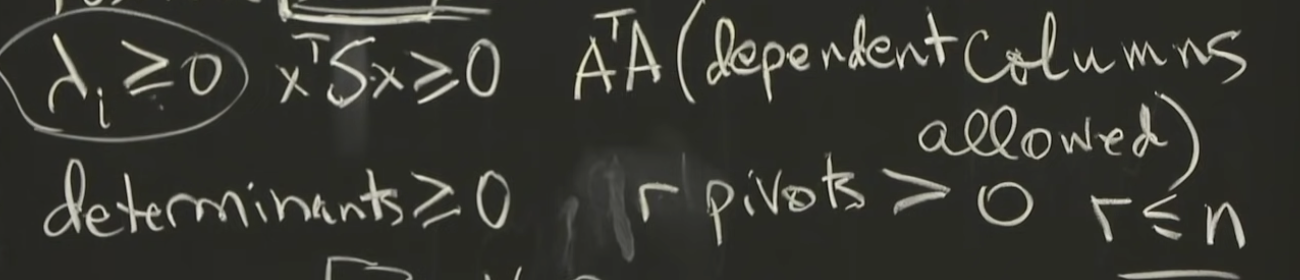 λᵢ ≥ 0 xᵀSx ≥ 0 AᵀA (dependent columns
allowed)
determinants ≥ 0 r pivots > 0 r ≤ n